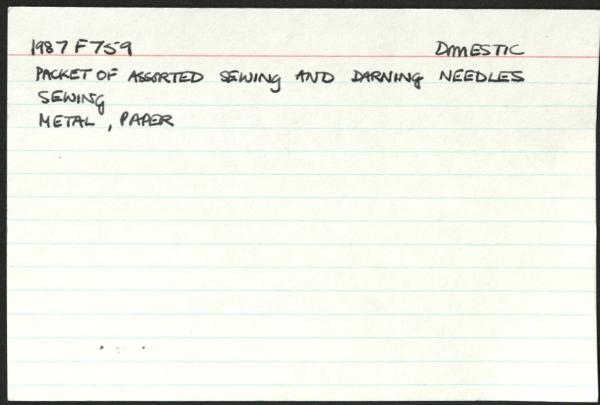 1987 F759 DOMESTIC
PACKET OF ASSORTED SEWING AND DARNING NEEDLES
SEWING
METAL, PAPER